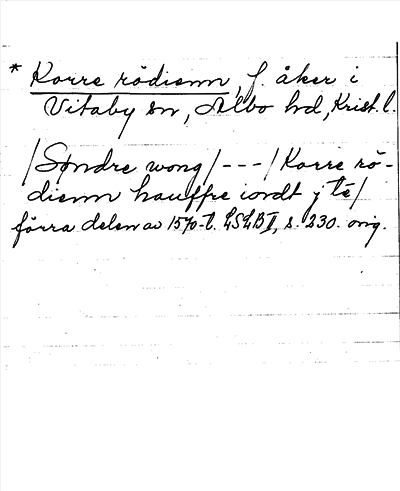 * Korre rödienn, f. åker i
Vitaby sn, Albo hd, Krist. l.
/Søndre wong/ --- /Korre rö-
dienn hauffre iordt j te/
förra delen av 1570-t. LSLB I, s. 230. orig.